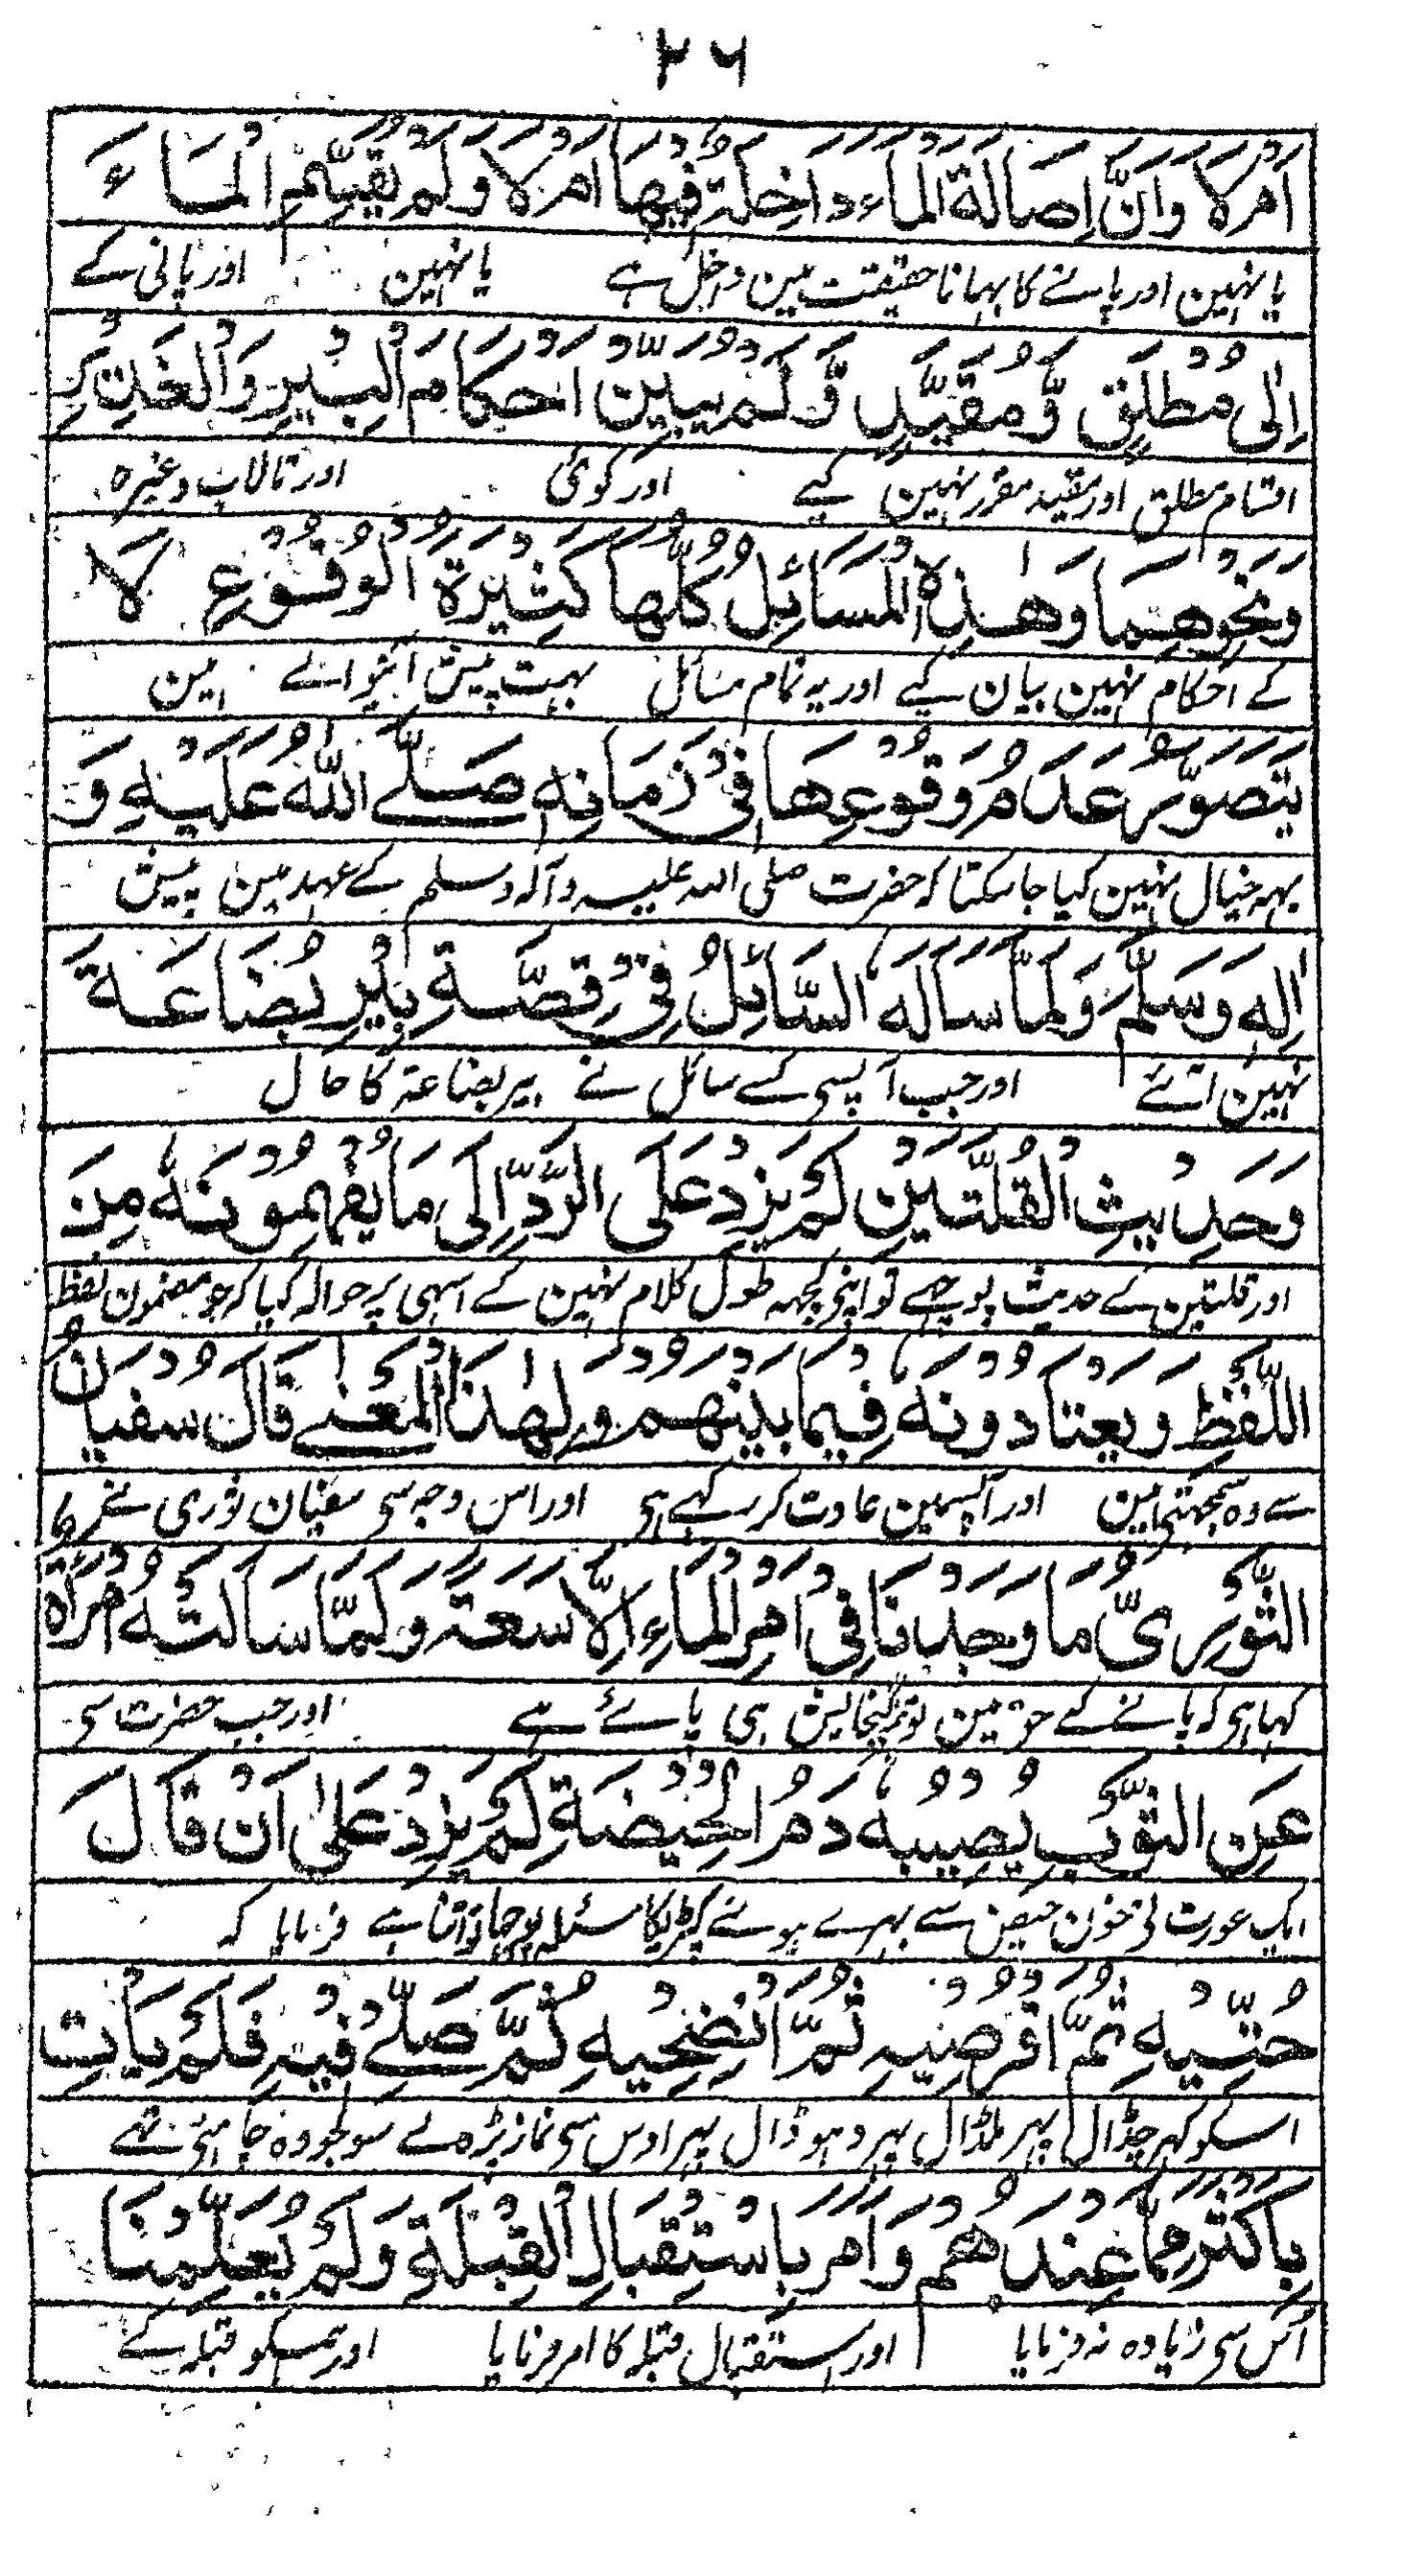 ۲۶
اَمْ لَا وَاَنَّ اِصَالَةَ الْمَاءِ دَاخِلَةٌ فِيْهَا اَمْ لَا وَلَمْ يُقَسِّمِ الْمَاءَ
یا نہین اور پانے کا بہانا حقیقت مین داخل ہے یا نہین اور پانی کے
اِلٰى مُطْلَقٍ وَّمُقَيَّدٍ وَّلَمْ يُبَيِّنْ اَحْكَامَ الْبِيْرِ وَالْغَدِيْرِ
اقسام مطلق اور مقید مقرر نہین کیے اور کوئی اور تالاب وغیرہ
وَنَحْوِهِمَا وَهٰذِهِ الْمَسَائِلُ كُلُّهَا كَثِيْرَةُ الْوُقُوْعِ لَا
کے احکام نہین بیان کیے اور یہ تمام مسائل بہت پیش آنیوالے ہین
يُتَصَوَّرُ عَدَمُ وُقُوْعِهَا فِيْ زَمَانِهٖ صَلَّے اللّٰهُ عَلَيْهِ وَ
یہہ خیال نہین کیا جا سکتا کہ حضرت صلی اللہ علیہ وآلہ وسلم کے عہد مین پیش
اٰلِهٖ وَسَلَّمَ وَلَمَّا سَاَلَهُ السَّائِلُ فِيْ قِصَّةِ بِيْرِ بُضَاعَةَ
نہین آئے اور جب آپسی کے سائل نے بیر بضاعۃ کا حال
وَحَدِيْثِ الْقُلَّتَيْنِ لَمْ يَزِدْ عَلَى الرَّدِّ اِلٰى مَا يَفْهَمُوْنَهٗ مِنَ
اور قلتین کے حدیث پوچھے تو اپنی کچہہ طول کلام نہین کے اسہی پر حوالہ کیا کہ جو مضمون لفظ
اللَّفْظِ وَيَعْتَادُوْنَهٗ فِيْمَا بَيْنَهُمْ وَلِهٰذَا الْمَعْنٰے قَالَ سُفْيَانُ
سے وہ سمجہتے ہین اور آپسمین عادت کر رکہے ہی اور اس وجہ سی سفیان ثوری نے
الثَّوْرِيُّ مَا وَجَدْنَا فِيْ اَمْرِ الْمَاءِ اِلَّا سَعَةً وَلَمَّا سَاَلَتْهُ امْرَأَةٌ
کہا ہی کہ پانے کے حق مین تو گنجایش ہی پائے ہے اور جب حضرت سی
عَنِ الثَّوْبِ يُصِيْبُهٗ دَمُ الْحَيْضَةِ لَمْ يَزِدْ عَلٰى اَنْ قَالَ
ایک عورت نی خون حیض سے بہرے ہوئے کپڑیکا مسئلہ پوچہا تو اتنا ہے فرمایا کہ
حُتِّيْهِ ثُمَّ اقْرُصِيْهِ ثُمَّ انْضَحِيْهِ ثُمَّ صَلِّے فِيْهِ فَلَمْ يَأْتِ
اسکو کہرچ ڈال پہر ملڈال پہر دہو ڈال پہر اوس سی نماز پڑہ لے سو جو وہ جانتی تہے
بِاَكْثَرَ مِمَّا عِنْدَهُمْ وَاَمَرَ بِاسْتِقْبَالِ الْقِبْلَةِ وَلَمْ يُعَلِّمْنَا
اُس سی زیادہ نہ فرمایا اور استقبال قبلہ کا امر فرمایا اور ہمسکو قبلہ کے